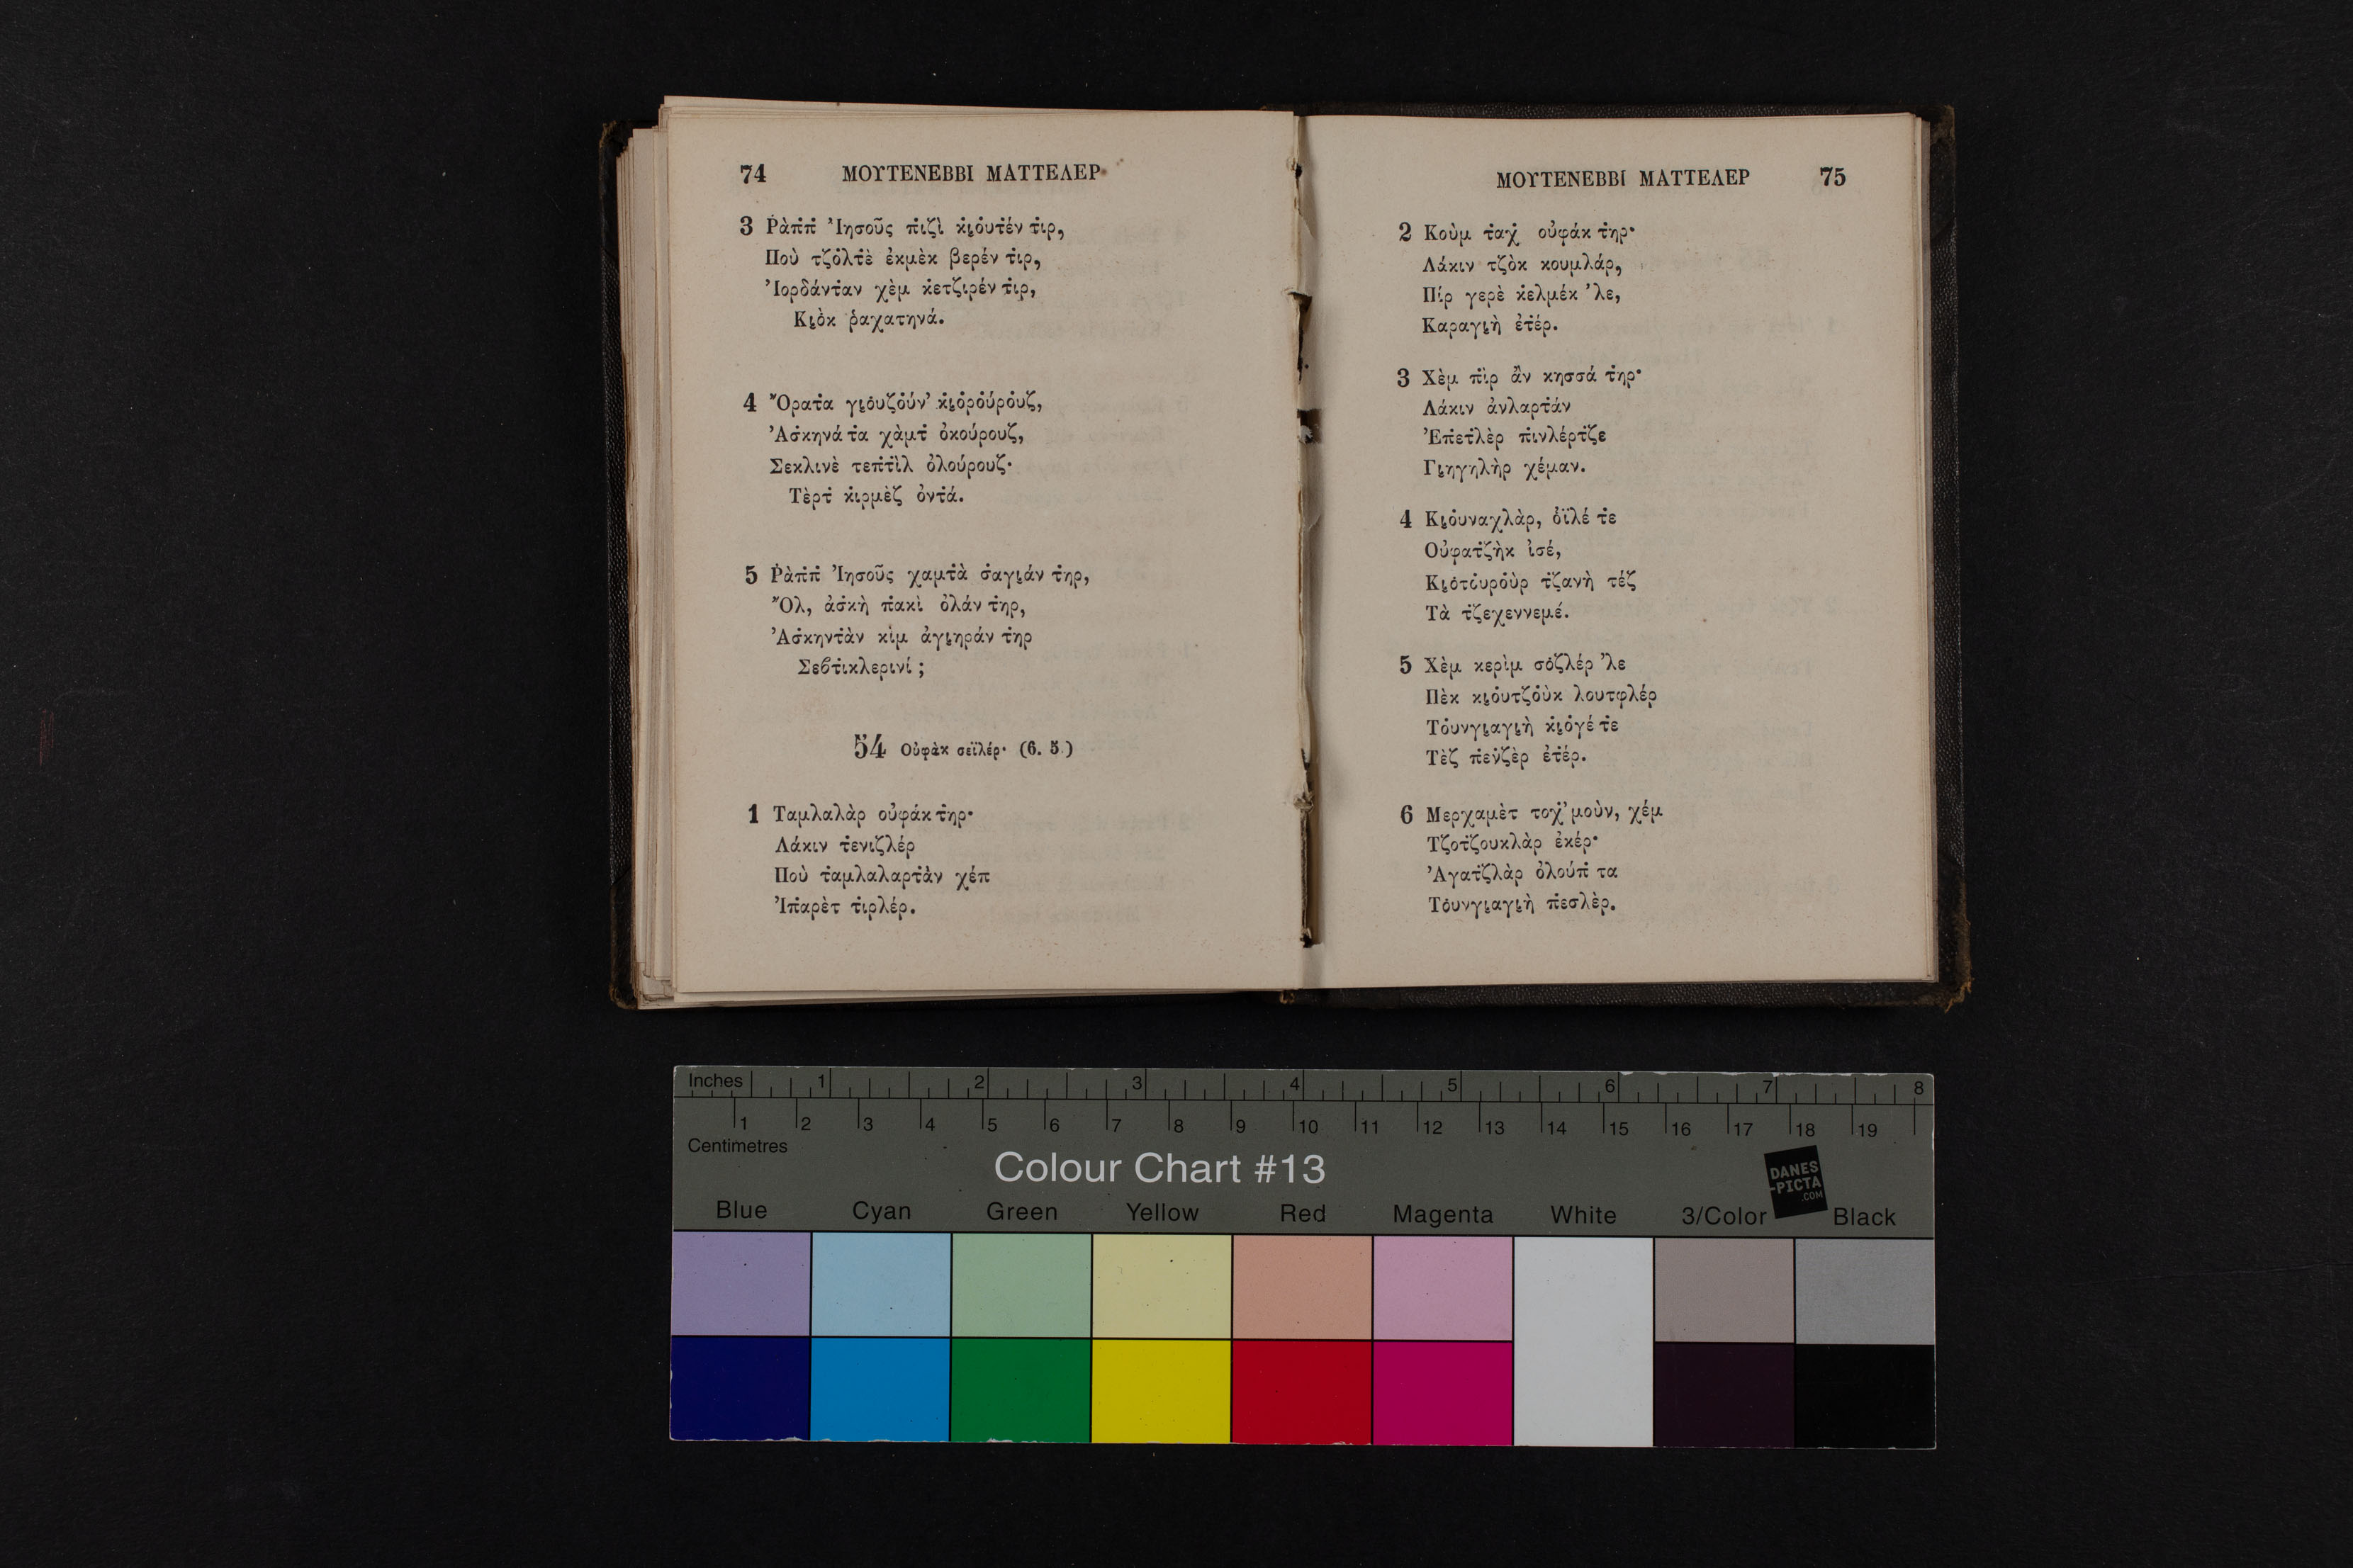 74 ΜΟΥΤΕΝΕΒΒΙ ΜΑΤΤΕΛΕΡ
3 Ῥὰπ̇π̇ Ἰησοῦς π̇ιζὶ κ̇ι̮ο̇υτ̇έν τ̇ιρ,
Ποὺ τζο̇λτ̇ὲ ἐκμὲκ βερέν τ̇ιρ,
Ἰορδάντ̇αν χὲμ κ̇ετζιρέν τ̇ιρ,
Κι̮ο̇̀κ ῥαχατηνά.
4 Ὄρατ̇α γι̮ο̇υζο̇ύν' κ̇ι̮ο̇ρο̇ύρο̇υζ,
Ἀσ̇κηνά τ̇α χὰμτ̇ ὀκούρουζ,
Σεκλινὲ τεπ̇τ̇ὶλ ὀλούρουζ·
Τὲρτ̇ κ̇ιρμὲζ ὀντ̇ά.
5 Ῥὰπ̇π̇ Ἰησοῦς χαμτ̇ὰ σ̇αγι̮άν τ̇ηρ,
Ὂλ, ἀσ̇κὴ π̇ακὶ ὀλάν τ̇ηρ,
Ἀσ̇κηντ̇ὰν κὶμ ἀγι̮ηράν τ̇ηρ
Σεβτ̇ικλερινί ;
54 Οὐφὰκ σεϊλέρ· (6. 5.)
1 Ταμλαλὰρ οὐφάκ τ̇ηρ·
Λάκιν τ̇ενιζλέρ
Ποὺ τ̇αμλαλαρτ̇ὰν χέπ
Ἰπ̇αρὲτ τ̇ιρλέρ.
ΜΟΥΤΕΝΕΒΒΙ ΜΑΤΤΕΛΕΡ 75
2 Κοὺμ τ̇αχ̇ οὐφάκ τ̇ηρ·
Λάκιν τζὸκ κουμλάρ,
Πίρ γερὲ κ̇ελμέκ 'λε,
Καραγι̮ὴ ἐτ̇έρ.
3 Χὲμ π̇ὶρ ἂν κησσά τ̇ηρ·
Λάκιν ἀνλαρτ̇άν
Ἐπ̇ετ̇λὲρ π̇ινλέρτ̇ζε
Γι̮ηγηλὴρ χέμαν.
4 Κι̮ο̇υναχλὰρ, ὀ̇ϊλέ τ̇ε
Οὐφατ̇ζὴκ ἰσέ,
Κι̮ο̇το̇υρο̇ὺρ τ̇ζανὴ τέζ
Τὰ τ̇ζεχεννεμέ.
5 Χὲμ κερὶμ σο̇ζλέρ 'λε
Πὲκ κι̮ο̇υτζο̇ὺκ λουτφλέρ
Το̇υνγι̮αγι̮ὴ κ̇ι̮ο̇γέ τ̇ε
Τὲζ π̇ενζὲρ ἐτ̇έρ.
6 Μερχαμὲτ τοχ̇'μοὺν, χέμ
Τζοτ̇ζουκλὰρ ἐκέρ·
Ἀγατ̇ζλὰρ ὀλούπ̇ τα
Το̇υνγι̮αγι̮ὴ π̇εσλὲρ.
Inches 1 2 3 4 5 6 7 8
1 2 3 4 5 6 7 8 9 10 11 12 13 14 15 16 17 18 19
Centimetres
Colour Chart #13
DANES
-PICTA
.COM
Blue Cyan Green Yellow Red Magenta White 3/Color Black